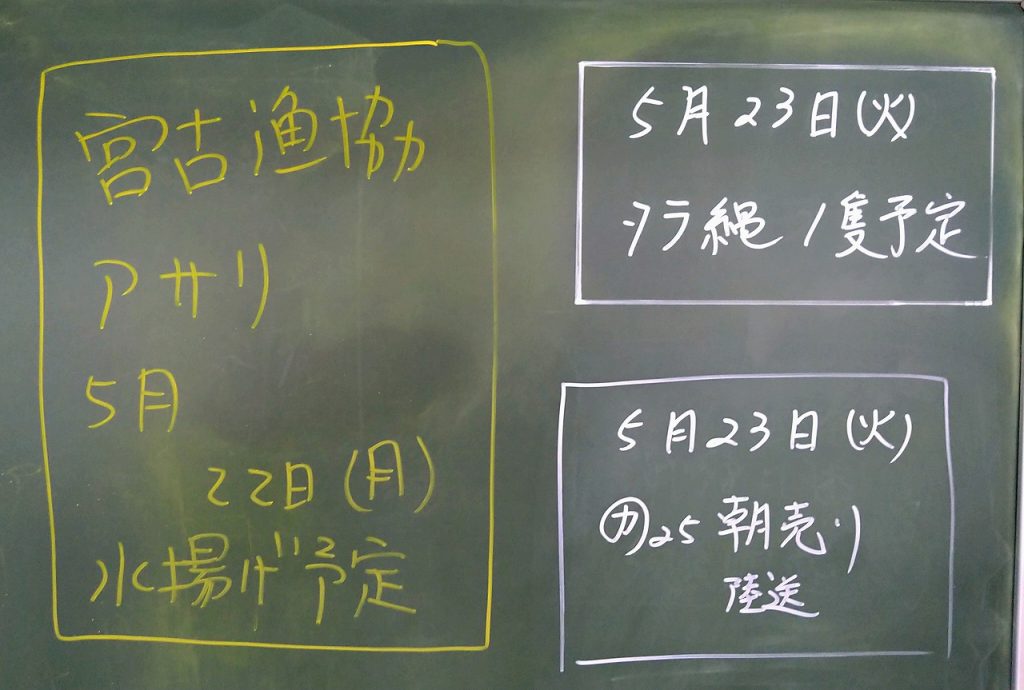 宮古漁協
アサリ
5月
22日(月)
水揚げ予定
5月23日(火)
タラ縄1隻予定
5月23日(火)
㋕25朝売り
陸送